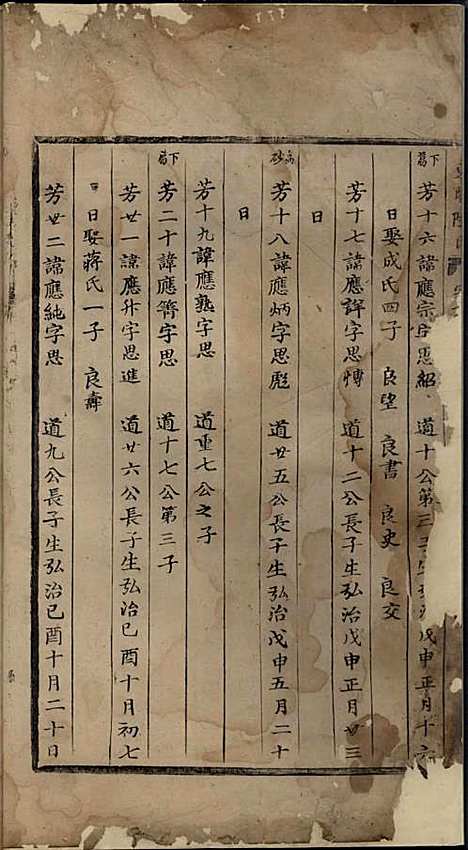 下葛
芳十六諱應宗字思紹 道十公第三子生弘治戊申正月十六
日娶成氏四子 良望 良書 良史 良交
芳十七諱應詳字思博 道十二公長子生弘治戊申正月廿三
日
高砂
芳十八諱應炳字思彪 道廿五公長子生弘治戊申五月二十
日
芳十九諱應熟字思 道重七公之子
下葛
芳二十諱應簹字思 道十七公第三子
芳廿一諱應升字思進 道廿六公長子生弘治己酉十月初七
日娶蔣氏一子 良壽
芳廿二諱應純字思 道九公長子生弘治己酉十月二十日